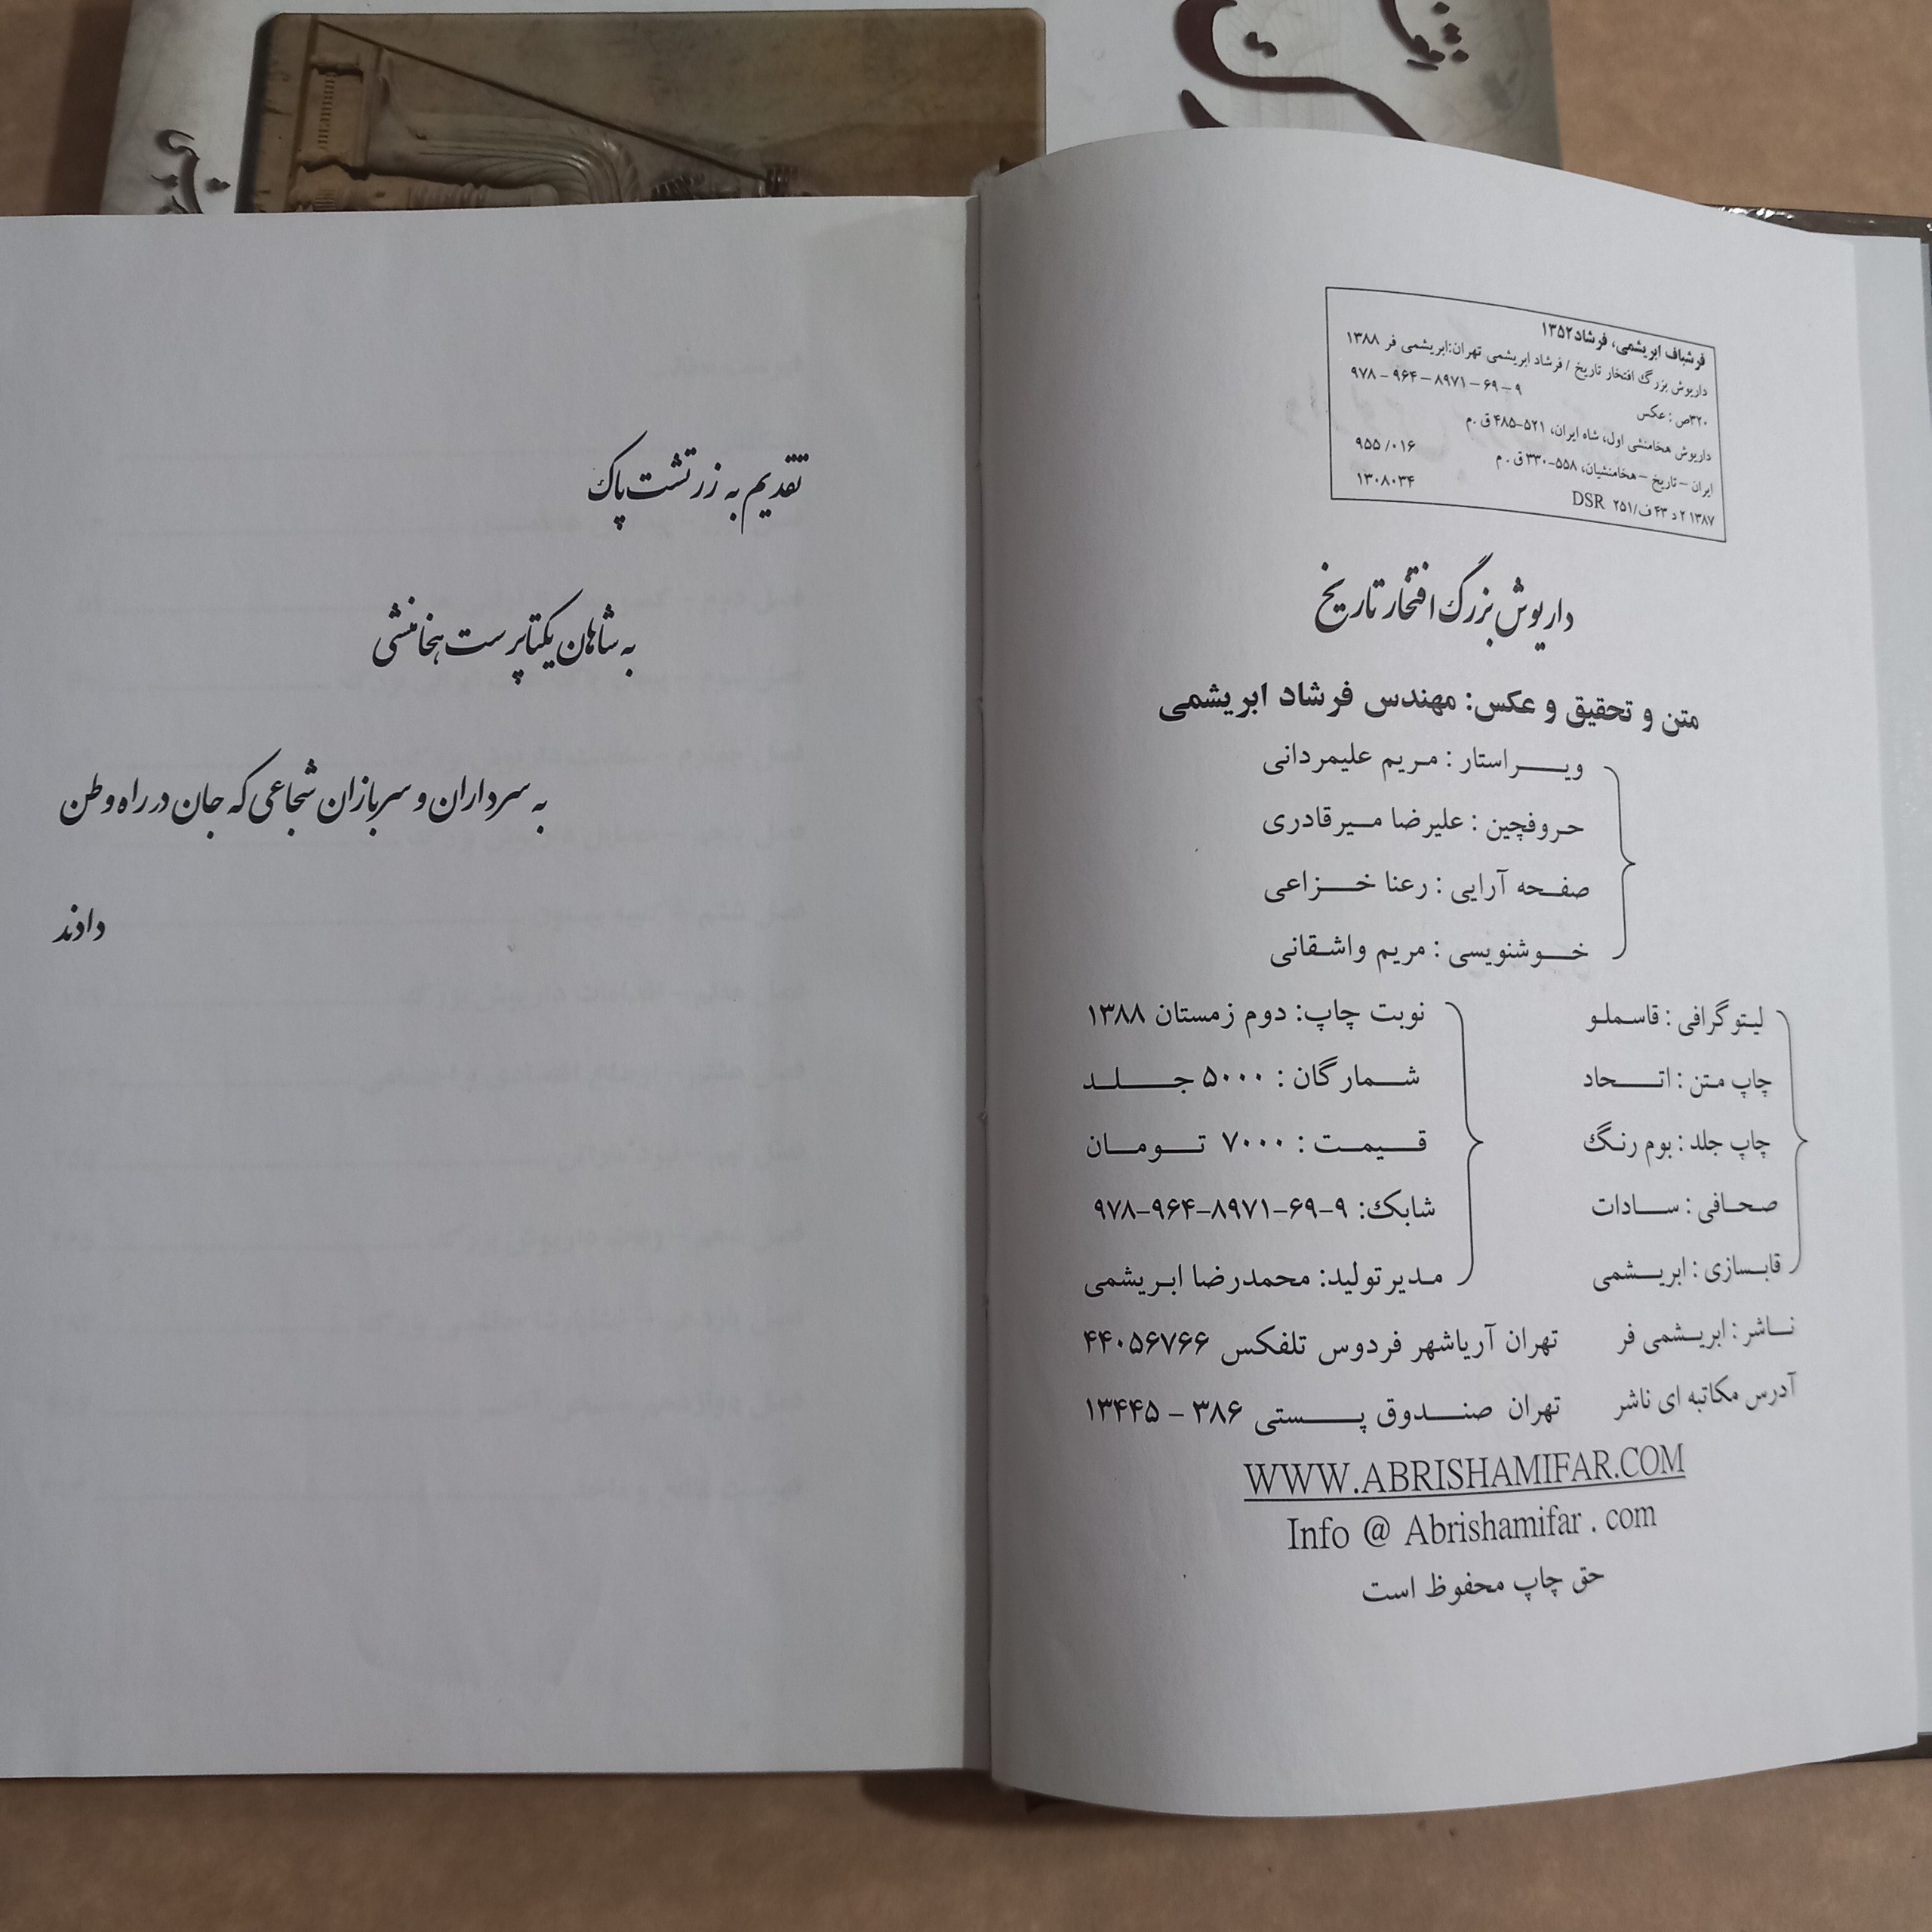 فرشباف ابریشمی، فرشاد ۱۳۵۲
داریوش بزرگ افتخار تاریخ / فرشاد ابریشمی تهران:ابریشمی فر ۱۳۸۸
۹۷۸ – ۹۶۴ – ۸۹۷۱ – ۶۹ – ۹
۳۲۰ص : عکس
داریوش هخامنشی اول، شاه ایران، ۵۲۱–۴۸۵ ق .م
ایران – تاریخ – هخامنشیان، ۵۵۸–۳۳۰ ق . م ۹۵۵/۰۱۶
۱۳۸۷ ۲ د ۴۳ ف/۲۵۱ DSR ۱۳۰۸۰۳۴
داریوش بزرگ افتخار تاریخ
متن و تحقیق و عکس: مهندس فرشاد ابریشمی
ویـــراستار : مـریم علیمردانی
حـروفچین : علیرضا مـیرقادری
صفـحه آرایی : رعنا خـــزاعی
خـــوشنویسی : مریم واشـقانی
لیـتوگرافی : قاسـملـو
چاپ متن : اتـــحاد
چاپ جلد : بوم رنـگ
صحـافی : ســـادات
قابـسازی : ابریـــشمی
نوبت چاپ: دوم زمستان ۱۳۸۸
شـــمارگان : ۵۰۰۰ جـــلـــد
قـــیـمـت : ۷۰۰۰ تـــومــان
شابک: ۹–۶۹–۸۹۷۱–۹۶۴–۹۷۸
مـدیرتولید: محمدرضا ابـریشمی
نـــاشر : ابریــشمی فر تهران آریاشهر فردوس تلفکس ۴۴۰۵۶۷۶۶
آدرس مکاتبه ای ناشر تهران صنـــدوق پـــــستی ۳۸۶ – ۱۳۴۴۵
WWW.ABRISHAMIFAR.COM
Info @ Abrishamifar . com
حق چاپ محفوظ است
تقدیم به زرتشت پاک
به شاهان یکتاپرست هخامنشی
به سرداران و سربازان شجاعی که جان در راه وطن
دادند